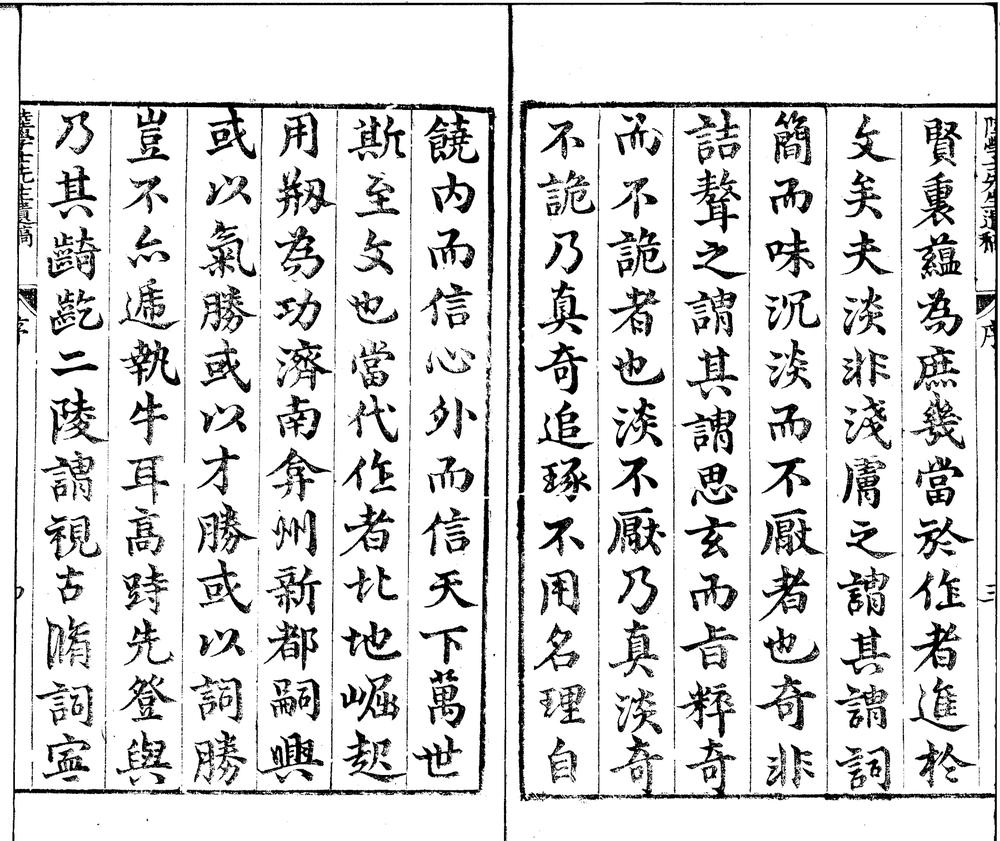 陸學士先生遺稿 序 三
賢裏蘊為庶幾當於作者進於
文矣夫淡非淺膚之謂其謂詞
簡而味沉淡而不厭者也奇非
詰聱之謂其謂思玄而旨粹奇
而不詭者也淡不厭乃真淡奇
不詭乃真奇追琢不用名理自
饒內而信心外而信天下萬世
斯至文也當代作者北地崛起
用剏為功濟南弇州新都嗣興
或以氣勝或以才勝或以詞勝
豈不亦遞執牛耳高跱先登與
乃其齮齕二陵謂視古脩詞寍
陸學士先生遺稿 序